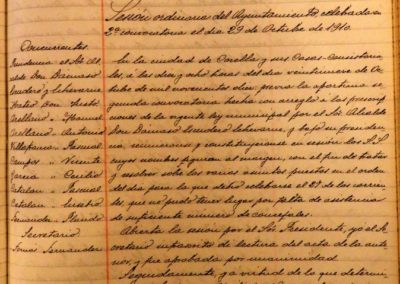 Sesión ordinaria del Ayuntamiento, celebrada en
2ª convocatoria el dia 29 de Octubre de 1910.
Concurrentes
Presidencia el Sr. Al-
calde Don Damaso
Escudero y Echevarria
Arellano " Manuel
Arellano " Antonio
" Pascual
Campos " Vicente
Garcia " Cecilio
Catalan " Pascual
Catalan " Eusebio
Fernandez "
Secretario
Tomas Fernandez
En la ciudad de Corella y sus Casas-Consistoria-
les, á las diez y ocho horas del dia veintinueve de Oc-
tubre de mil novecientos diez, previa la oportuna se-
gunda convocatoria hecha con arreglo á las prescrip-
ciones de la vigente ley municipal por el Sr. Alcalde
Don Damaso Escudero Echevarria, y bajo su presiden-
cia, reunieronse y constituyeronse en sesión los Sres.
cuyos nombres figuran al margen, con el fin de tratar
y resolver sobre los varios asuntos puestos en el orden
del dia para la que debió celebrarse el 27 de los corrien-
tes, que no pudo tener lugar por falta de asistencia
de suficiente número de concejales.
Abierta la sesión por el Sr. Presidente, yo el Se-
cretario dí lectura del acta de la ante-
rior, y fue aprobada por unanimidad.
Seguidamente, y á virtud de lo que determi-